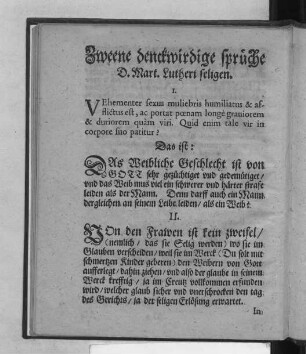 Zweene denckwirdige sprüche
D. Mart. Lutheri seligen.
I.
VEhementer sexus muliebris humiliatus & af-
flictus est, ac portat pœnam longè grauiorem
& duriorem quàm viri. Quid enim tale vir in
corpore suo patitur?
Das ist:
DAs Weibliche Geschlecht ist von
GOTT sehr gezüchtiget vnd gedemütiget/
vnd das Weib mus viel ein schwerer vnd härter strafe
leiden als der Mann. Denn darff auch ein Mann
dergleichen an seinem Leibe leiden/ als ein Weib?
II.
VOn den Frawen ist kein zweifel/
(nemlich/ das sie Selig werden) wo sie im
Glauben verscheiden/ weil sie im Werck (Du solt mit
schmertzen Kinder geberen) den Weibern von Gott
aufferlegt/ dahin ziehen/ vnd also der glaube in seinem
Werck krefftig/ ja im Creutz vollkommen erfunden
wird/ welcher glaub sicher vnd vnerschrocken den tag
des Gerichts/ ja der seligen Erlösung erwartet.
In: